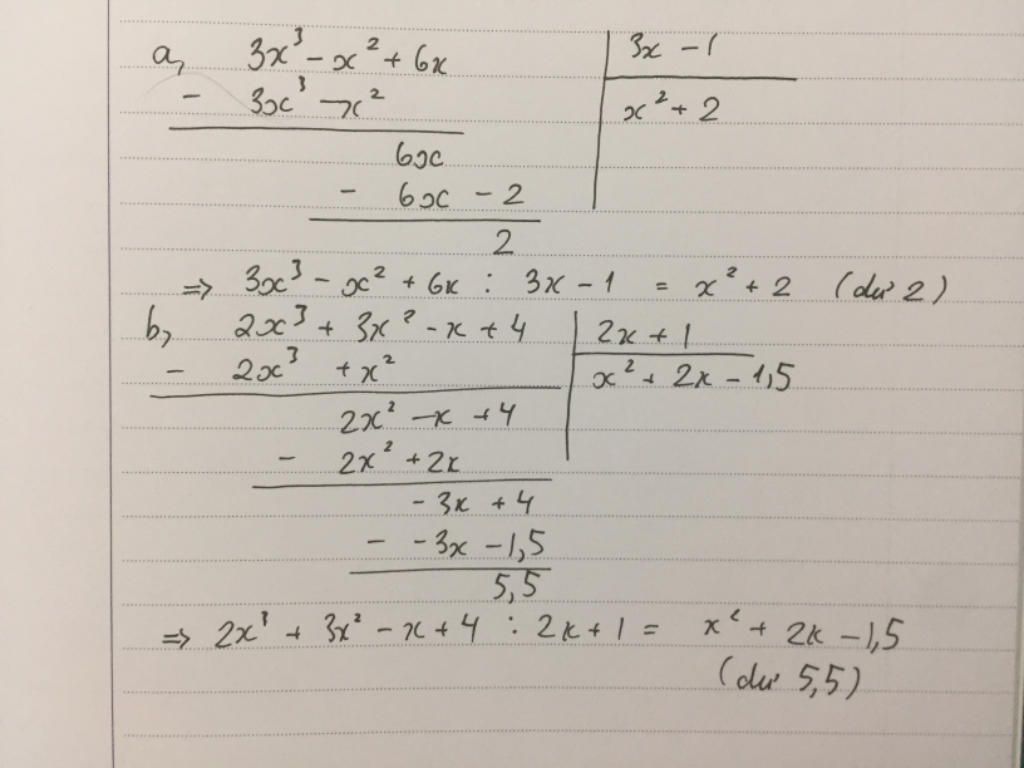 a, 3x³ - x² + 6x | 3x - 1
- 3x³ - x² | x² + 2
6x
- 6x - 2
2
=> 3x³ - x² + 6x : 3x - 1 = x² + 2 (dư 2)
b, 2x³ + 3x² - x + 4 | 2x + 1
- 2x³ + x² | x² + 2x - 1,5
2x² - x + 4
- 2x² + 2x
- 3x + 4
- - 3x - 1,5
5,5
=> 2x³ + 3x² - x + 4 : 2x + 1 = x² + 2x - 1,5
(dư 5,5)